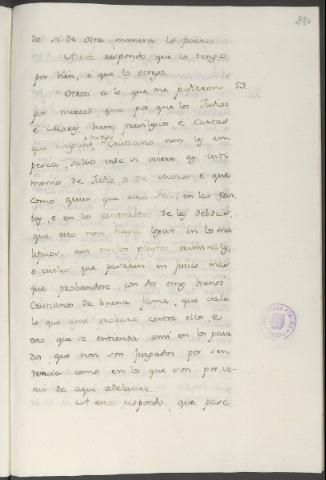 230
do si de otra manera lo ficiere
A esto respondo que lo tengo
por bien, e que lo otorgo.
Otrosi a lo que me pidieron 53.
por merced que por que los Judios
e Moros han previlegios e Cartas
que ningunt testigo Cristiano non les em
pesca, salvo ende si oviere ay testi
monio de Judio, o de Moro e que
como quier que esto sea en las car
tas, e en los contrabtos de las debdas,
que esto non haya logar en los ma
leficios, nin en los pleytos criminales,
o civiles que pasaren en juicio, mas
que probandose con dos omes buenos
Cristianos de buena fama, que vala
lo que ami probare contra ellos e
esto que se entienda ami en los pasa
dos que non son juzgados por sen
tencia como en los que son por ve
nir de aqui adelante.
A esto respondo, que pase